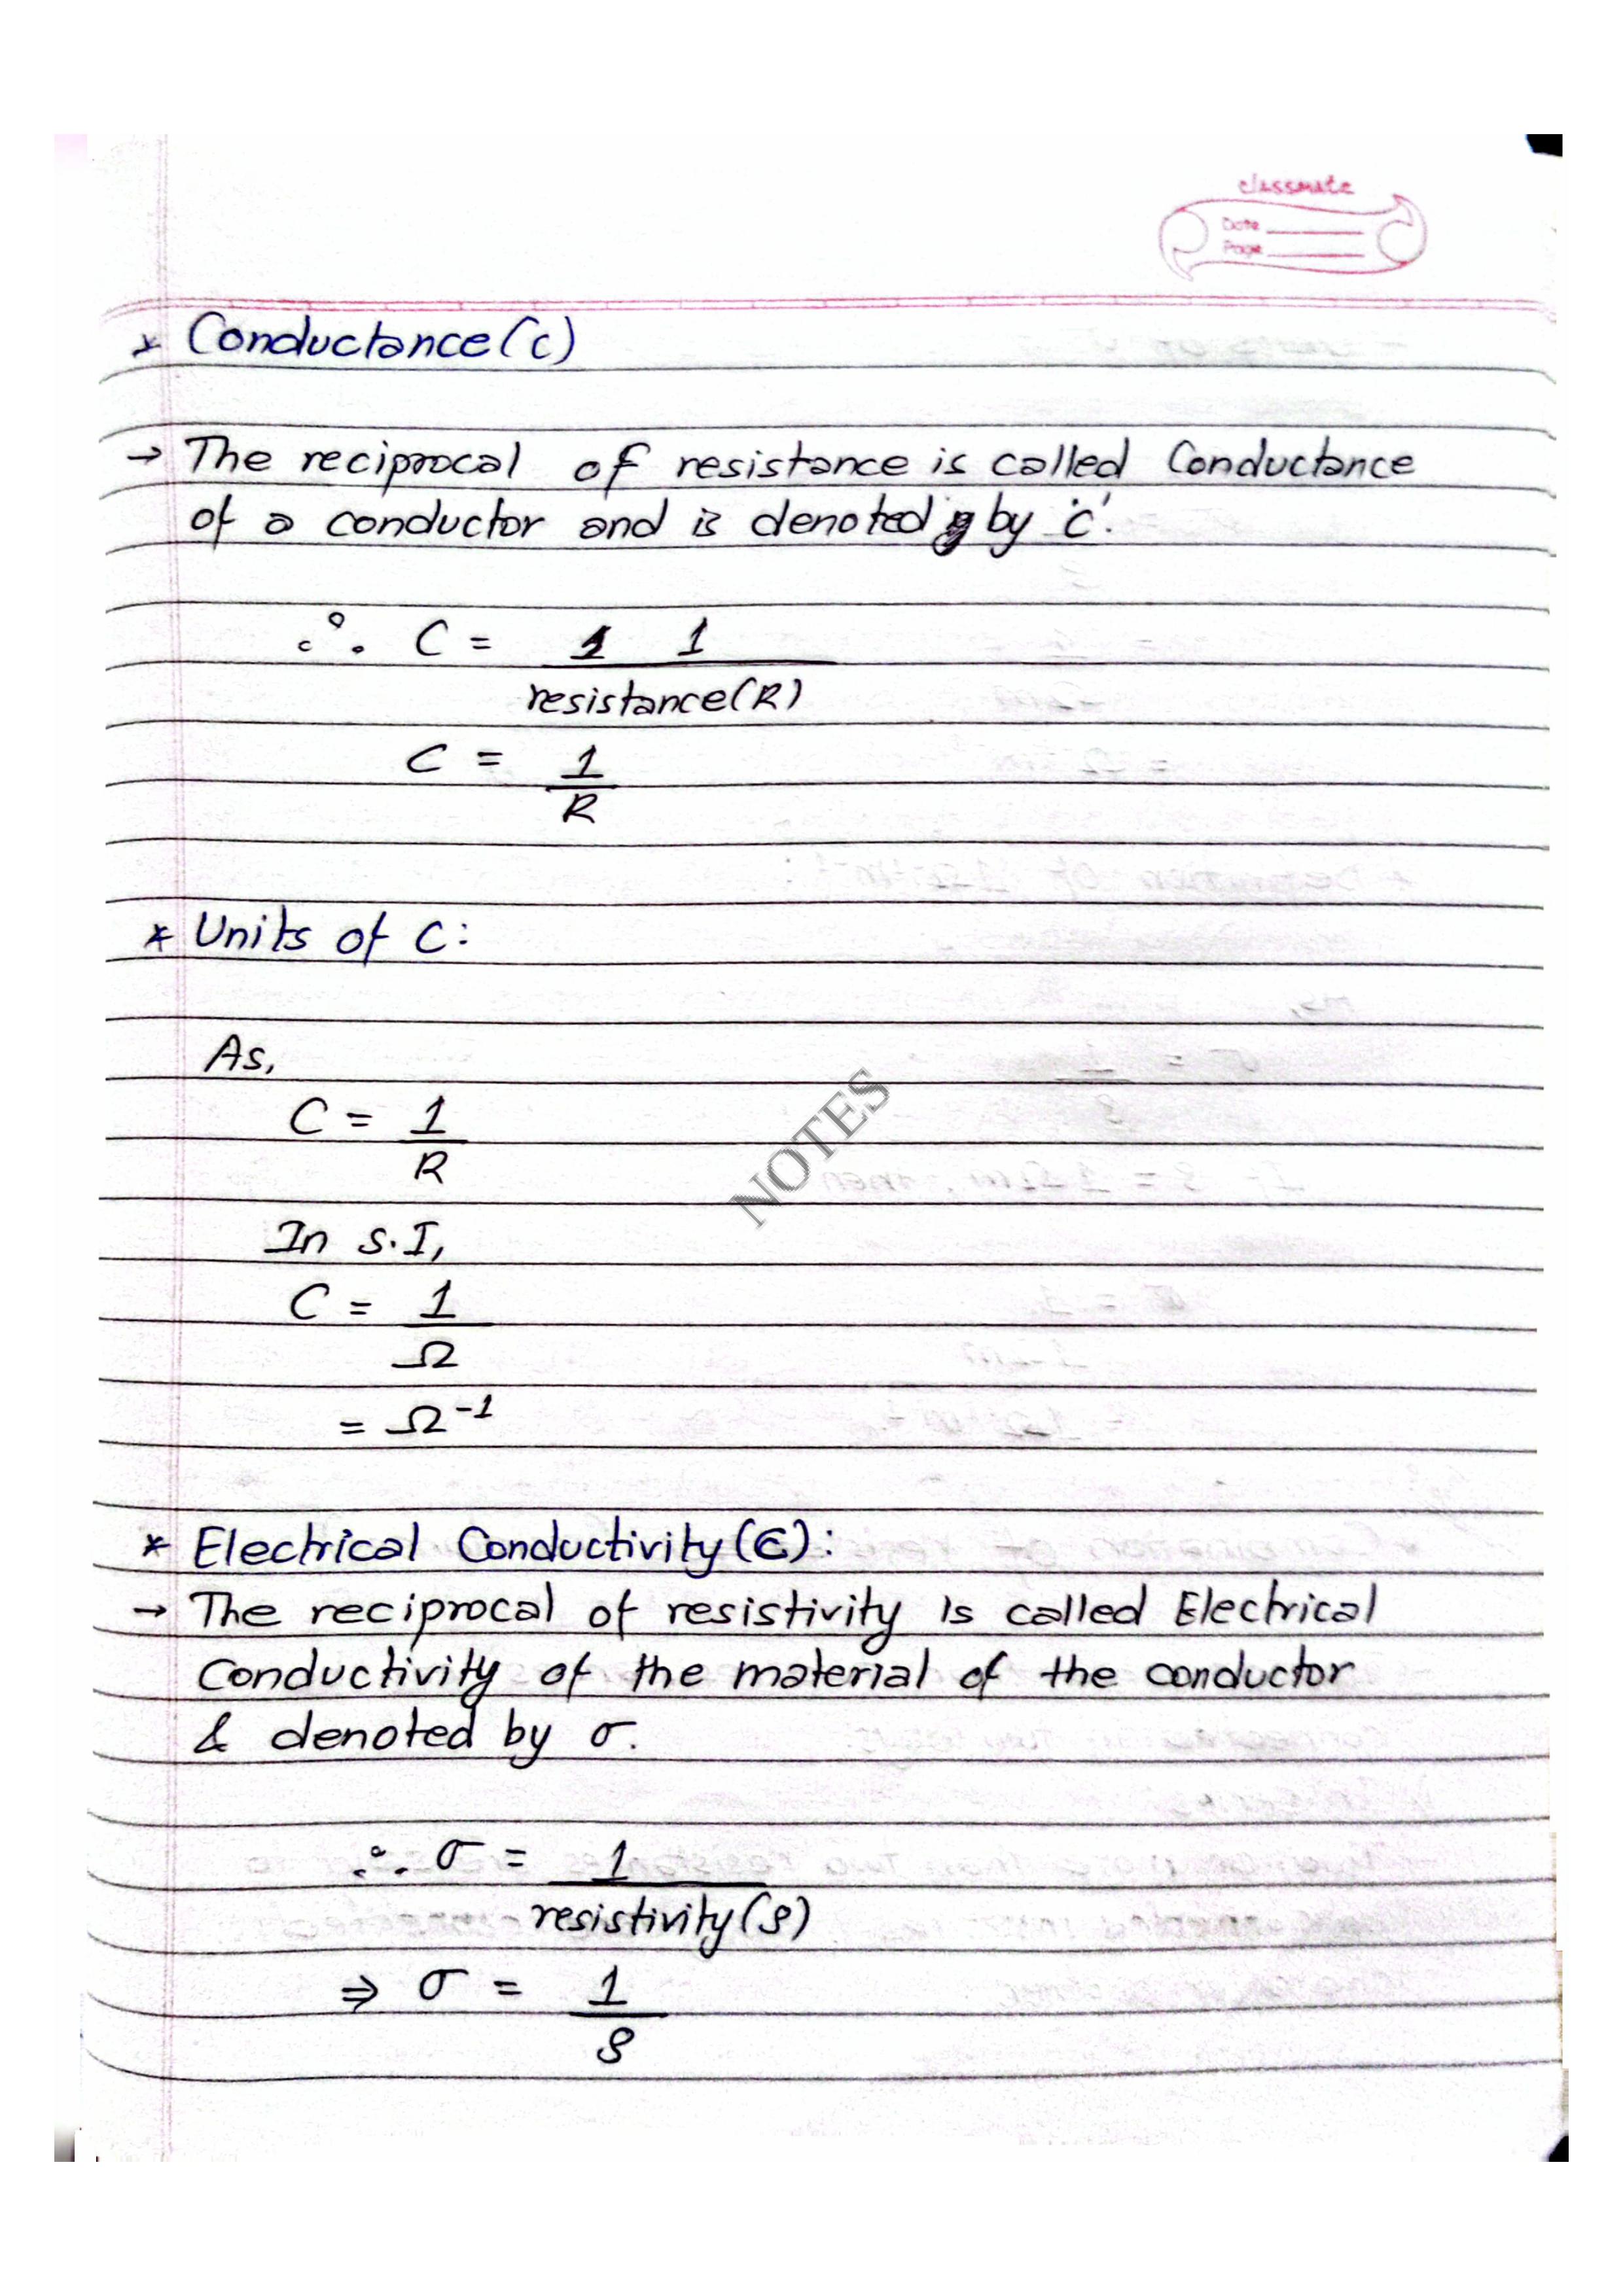 classmate
Date
Page
* Conductance(C)
→ The reciprocal of resistance is called Conductance
of a conductor and is denoted by 'C'.
∴ C = 1
resistance(R)
C = 1
R
* Units of C:
As,
C = 1
R
In S.I,
C = 1
Ω
= Ω⁻¹
NOTES
* Electrical Conductivity(σ):
→ The reciprocal of resistivity is called Electrical
Conductivity of the material of the conductor
& denoted by σ.
∴ σ = 1
resistivity(ρ)
⇒ σ = 1
ρ